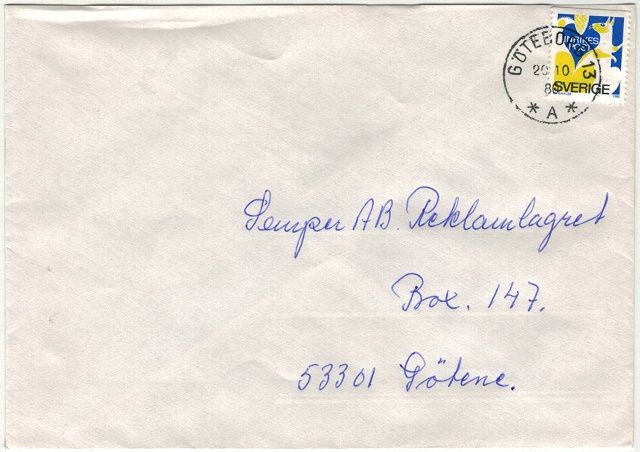 GÖTEBO 13
INRIKES
POST
20 10
SVERIGE
* A *
Semper AB. Reklamlagret
Box. 147.
53301 Götene.